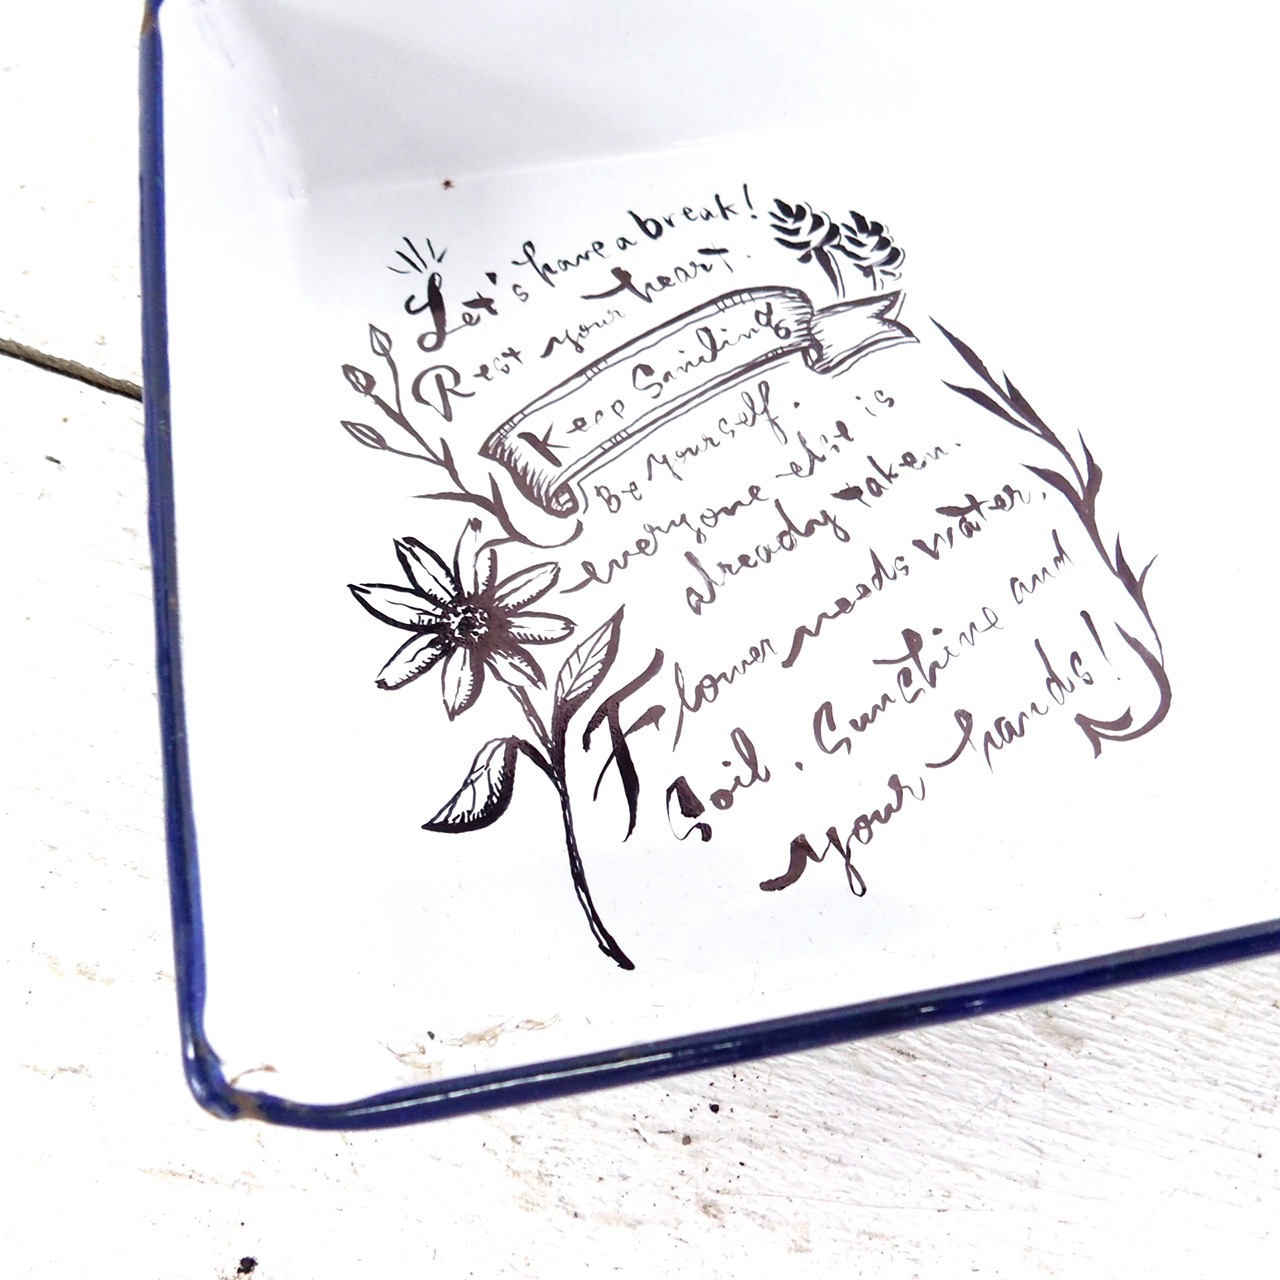 Let's have a break!
Rest your heart.
Keep Smiling
Be yourself.
everyone else is
already taken.
Flower needs water,
Soil, Sunshine and
your hands!